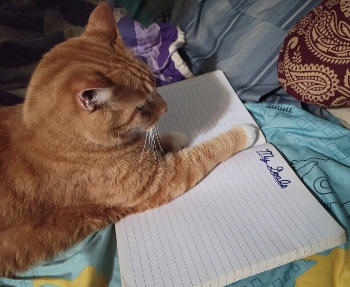 My Goals